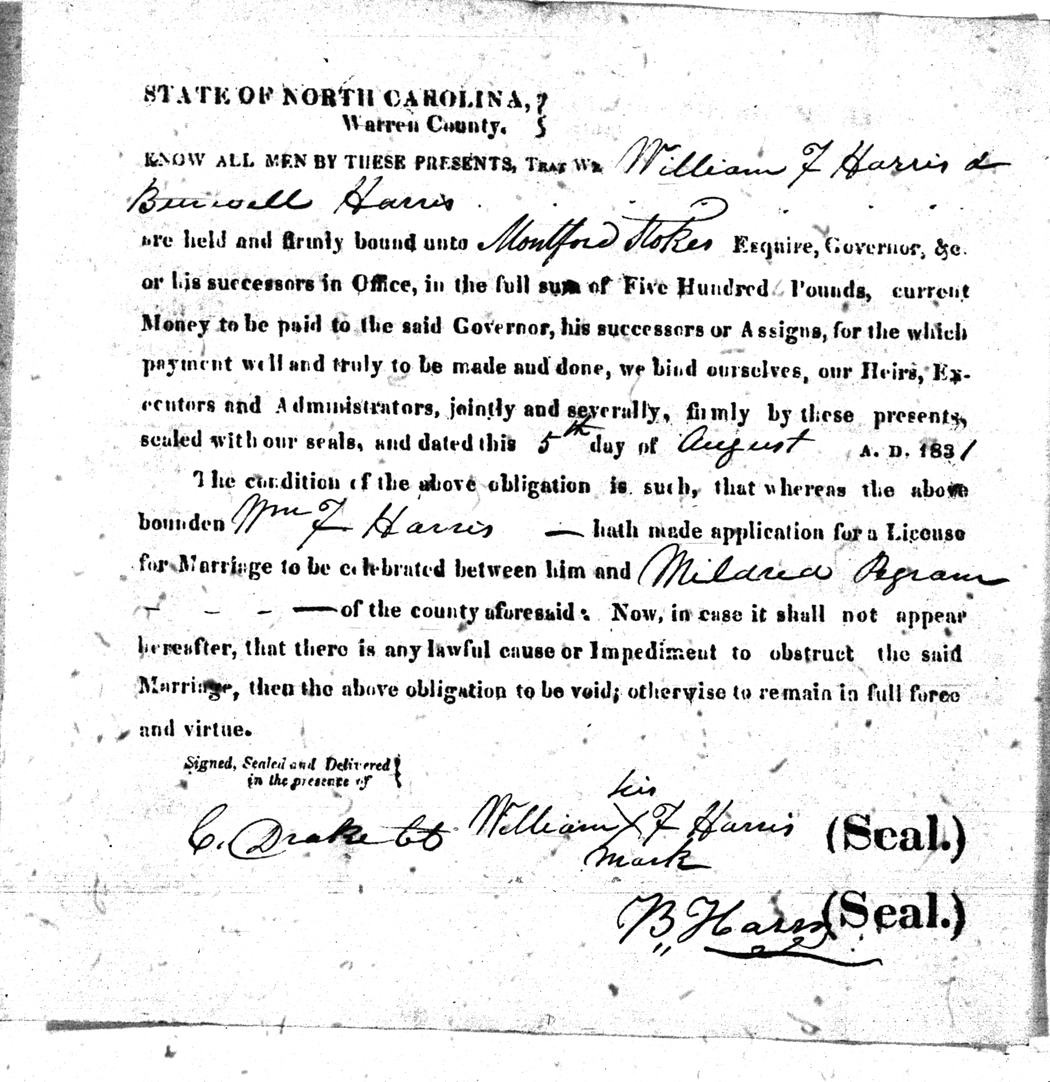 STATE OF NORTH CAROLINA,
Warren County.
KNOW ALL MEN BY THESE PRESENTS, THAT WE William F Harris &
Burwell Harris
are held and firmly bound unto Montford Stokes Esquire, Governor, &c.
or his successors in Office, in the full sum of Five Hundred Pounds, current
Money to be paid to the said Governor, his successors or Assigns, for the which
payment well and truly to be made and done, we bind ourselves, our Heirs, Ex-
ecutors and Administrators, jointly and severally, firmly by these presents,
sealed with our seals, and dated this 5th day of August A. D. 1831
The condition of the above obligation is such, that whereas the above
bounden Wm F Harris — hath made application for a License
for Marriage to be celebrated between him and Mildred Pegram
- - - — of the county aforesaid: Now, in case it shall not appear
hereafter, that there is any lawful cause or Impediment to obstruct the said
Marriage, then the above obligation to be void; otherwise to remain in full force
and virtue.
Signed, Sealed and Delivered
in the presence of
his
C. Drake William X F Harris (Seal.)
mark
B Harris (Seal.)